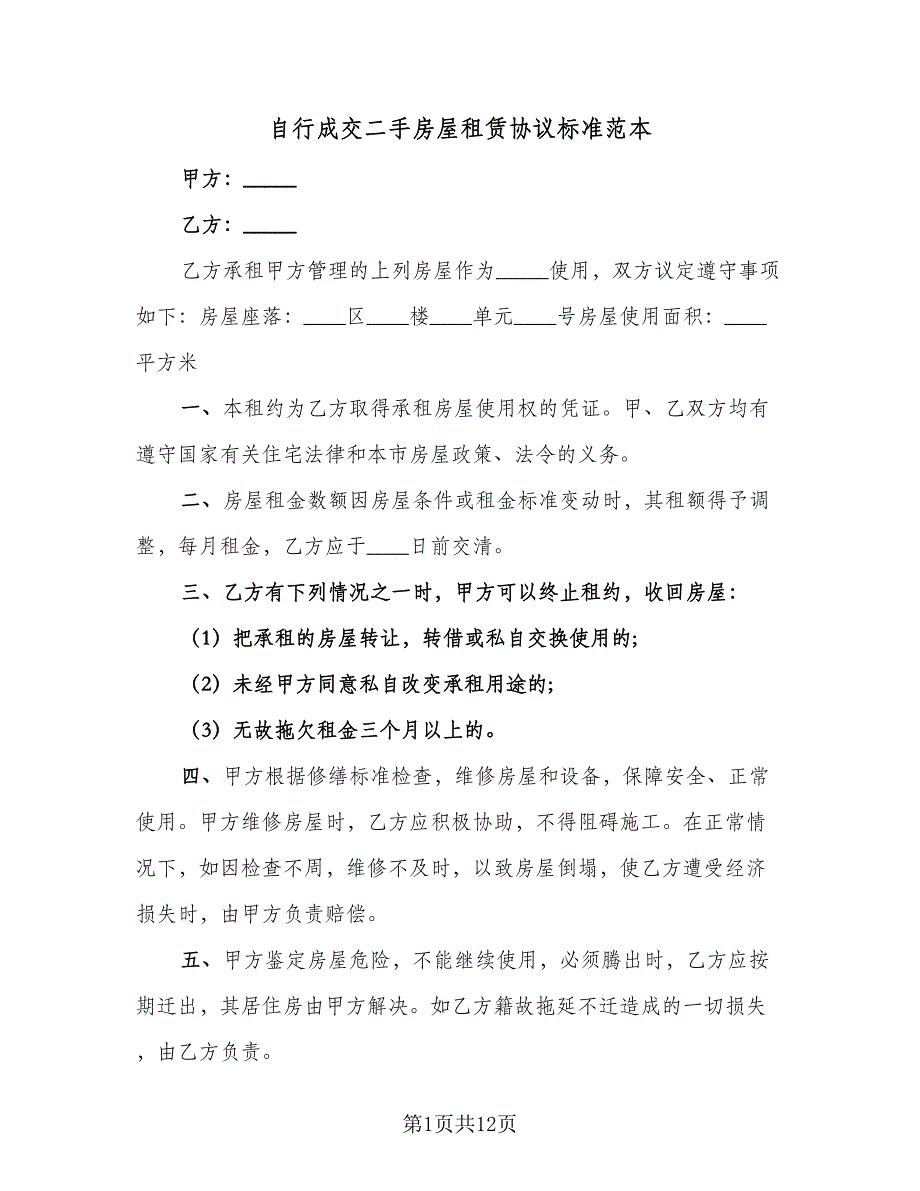 自行成交二手房屋租赁协议标准范本
甲方：_____
乙方：_____
乙方承租甲方管理的上列房屋作为_____使用，双方议定遵守事项
如下：房屋座落：____区____楼____单元____号房屋使用面积：____
平方米
一、本租约为乙方取得承租房屋使用权的凭证。甲、乙双方均有
遵守国家有关住宅法律和本市房屋政策、法令的义务。
二、房屋租金数额因房屋条件或租金标准变动时，其租额得予调
整，每月租金，乙方应于____日前交清。
三、乙方有下列情况之一时，甲方可以终止租约，收回房屋：
（1）把承租的房屋转让，转借或私自交换使用的；
（2）未经甲方同意私自改变承租用途的；
（3）无故拖欠租金三个月以上的。
四、甲方根据修缮标准检查，维修房屋和设备，保障安全、正常
使用。甲方维修房屋时，乙方应积极协助，不得阻碍施工。在正常情
况下，如因检查不周，维修不及时，以致房屋倒塌，使乙方遭受经济
损失时，由甲方负责赔偿。
五、甲方鉴定房屋危险，不能继续使用，必须腾出时，乙方应按
期迁出，其居住房由甲方解决。如乙方籍故拖延不迁造成的一切损失
，由乙方负责。
第1页共12页